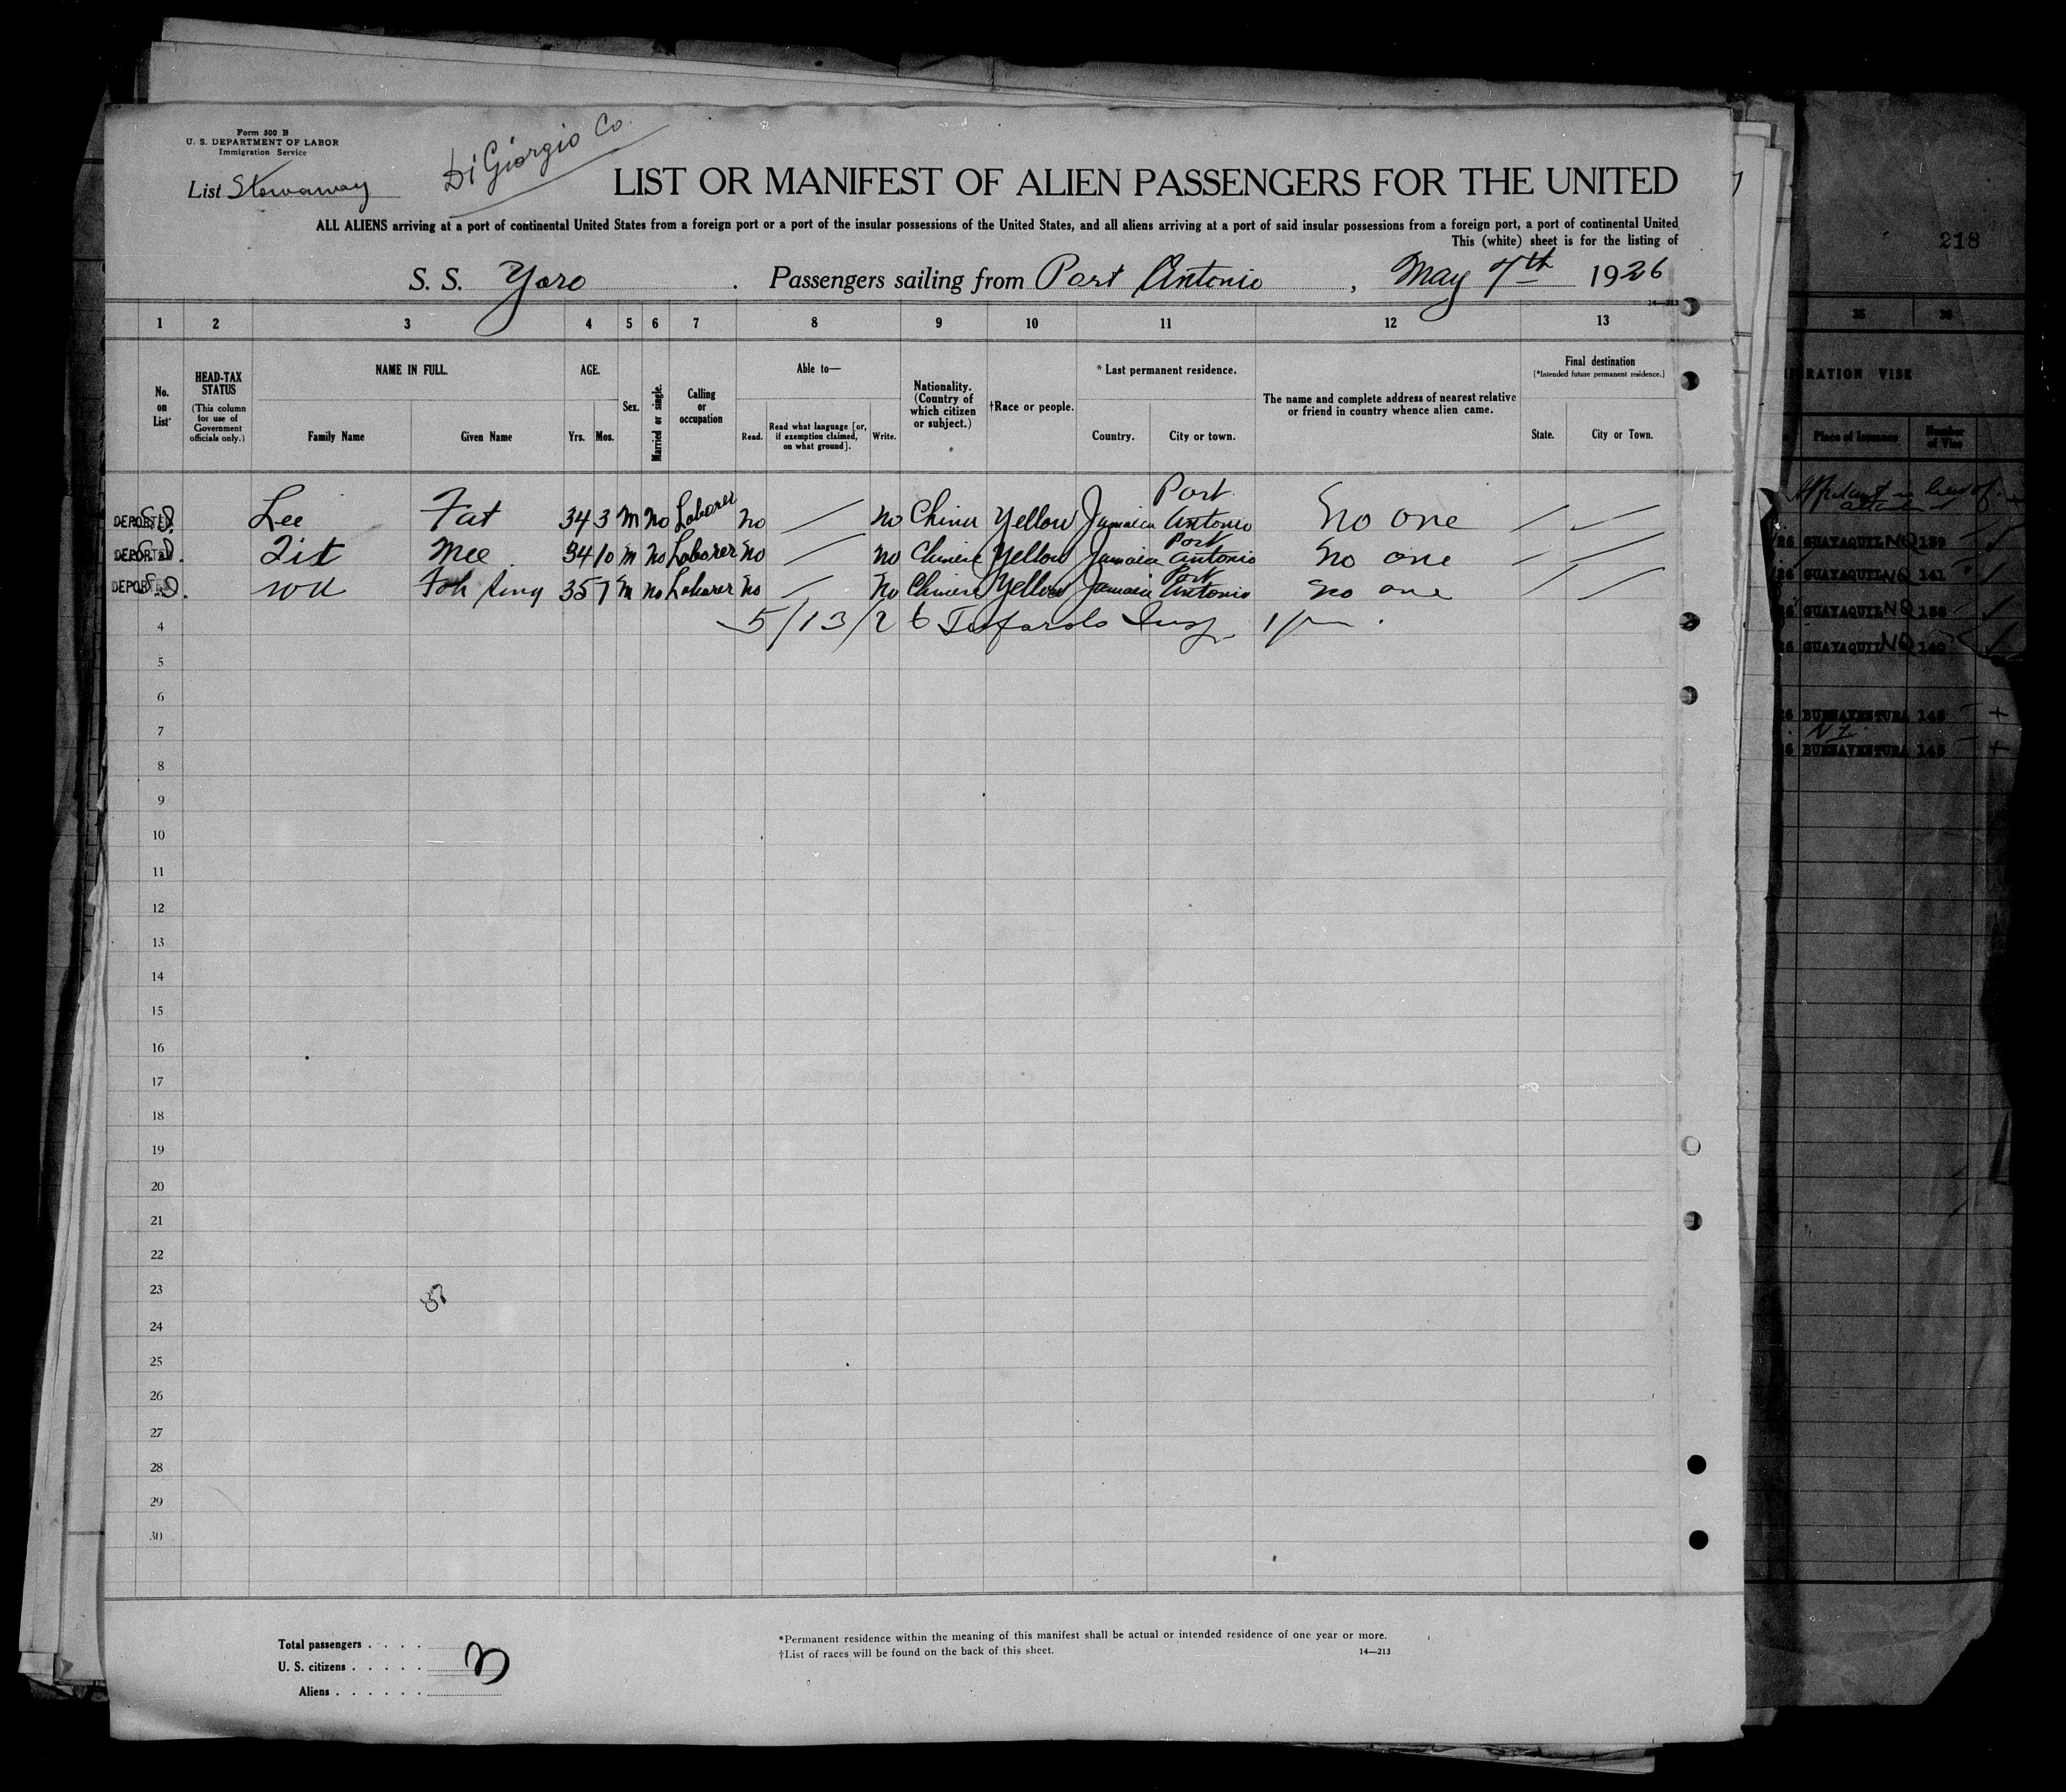 Form 500 B
U. S. DEPARTMENT OF LABOR
Immigration Service
List Stowaway
Di Giorgio Co.
LIST OR MANIFEST OF ALIEN PASSENGERS FOR THE UNITED
ALL ALIENS arriving at a port of continental United States from a foreign port or a port of the insular possessions of the United States, and all aliens arriving at a port of said insular possessions from a foreign port, a port of continental United
This (white) sheet is for the listing of
S. S. Yoro . Passengers sailing from Port Antonio , May 7th 1926
14—213
1 2 3 4 5 6 7 8 9 10 11 12 13
No. on List
HEAD-TAX STATUS
(This column for use of Government officials only.)
NAME IN FULL.
Family Name Given Name
AGE.
Yrs. Mos.
Sex.
Married or single.
Calling or occupation
Able to—
Read. Read what language [or, if exemption claimed, on what ground]. Write.
Nationality. (Country of which citizen or subject.)
†Race or people.
*Last permanent residence.
Country. City or town.
The name and complete address of nearest relative or friend in country whence alien came.
Final destination
[*Intended future permanent residence.]
State. City or Town.
DEPORTED Lee Fat 34 3 m no Laborer no / no China Yellow Jamaica Port Antonio No one / /
DEPORTED Mee 34 10 m no Laborer no / no Chinese Yellow Jamaica Port Antonio No one / /
DEPORTED 35 7 m no Laborer no / no Chinese Yellow Jamaica Port Antonio No one / /
5/13/26 Insp.
4
5
6
7
8
9
10
11
12
13
14
15
16
17
18
19
20
21
22
23
24
25
26
27
28
29
30
Total passengers . . . .
U. S. citizens . . . . . 3
Aliens . . . . . .
*Permanent residence within the meaning of this manifest shall be actual or intended residence of one year or more.
†List of races will be found on the back of this sheet. 14—213
218
35 36
RATION VISE
Place of Issuance Number of Vise
26 GUAYAQUIL NQ 139
26 GUAYAQUIL NQ 141
GUAYAQUIL NQ 138
26 GUAYAQUIL NQ 140
26 BUENAVENTURA 145
26 BUENAVENTURA 145